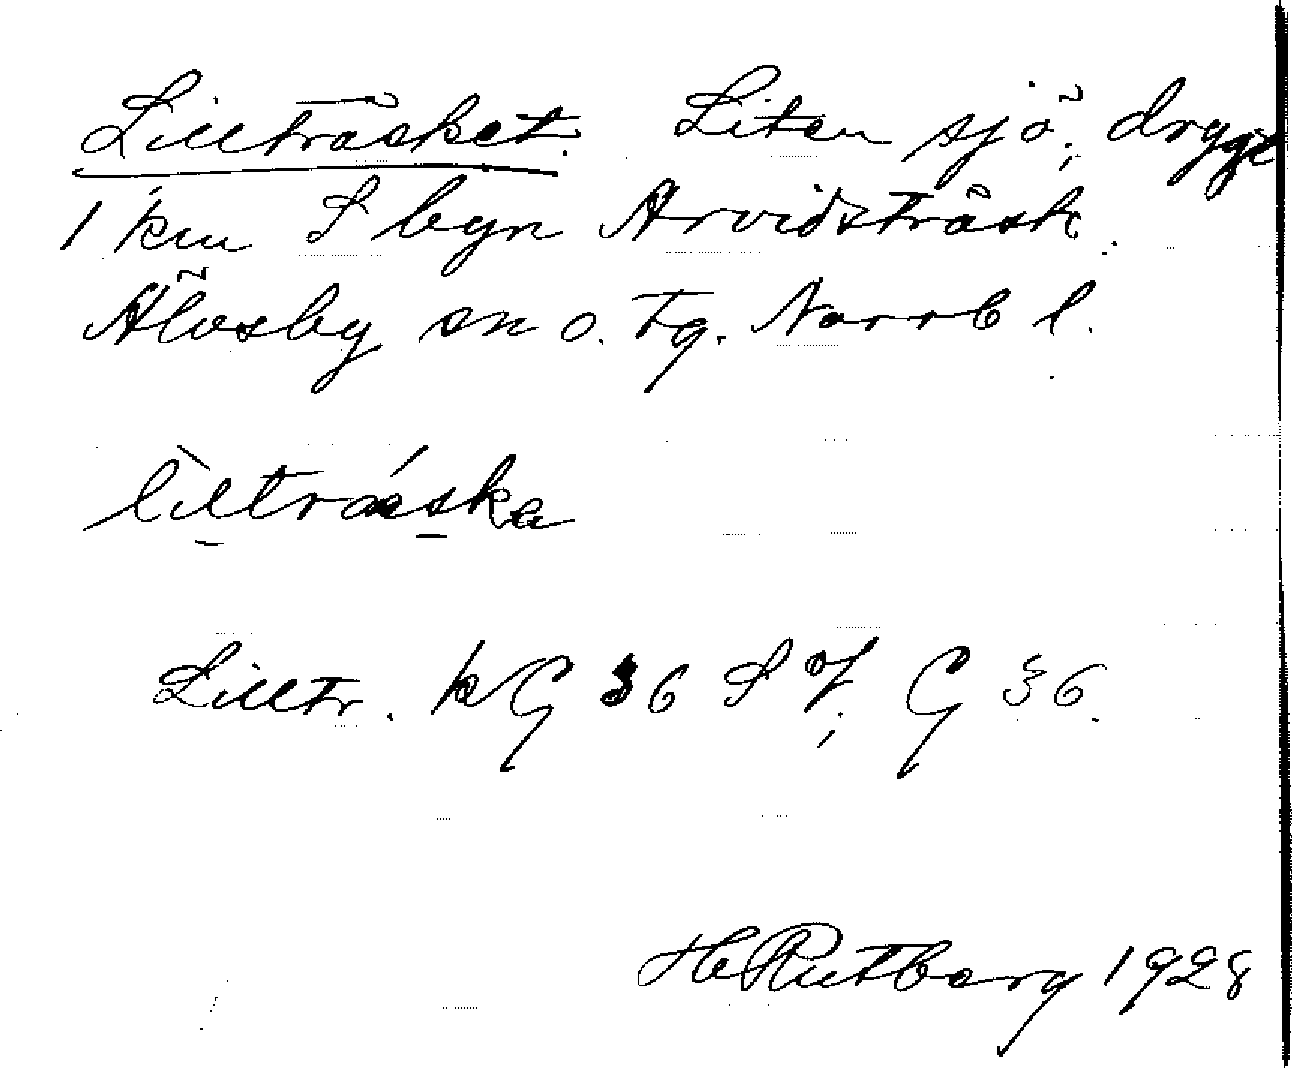 Lillträsket. Liten sjö, drygt
1 km S byn Arvidsträsk.
Älvsby sn o. tg. Norrb l.
lìlltrǽska
Lilltr. kG 36 S V; G 36.
H Rutberg 1928